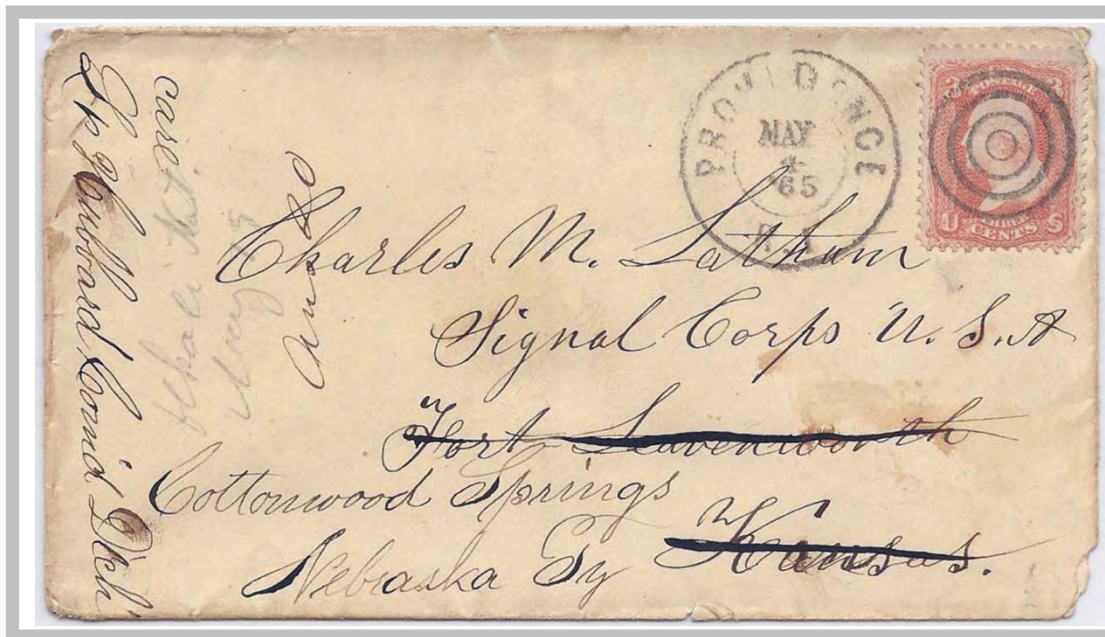 PROVIDENCE
MAY
4
'65
R.I.
U 3 CENTS S
Charles M. Latham
Signal Corps U.S.A
Fort Leavenworth
Kansas.
Cottonwood Springs
Nebraska Ty
care
Lt Hubbard Com'd Det
May
Ans